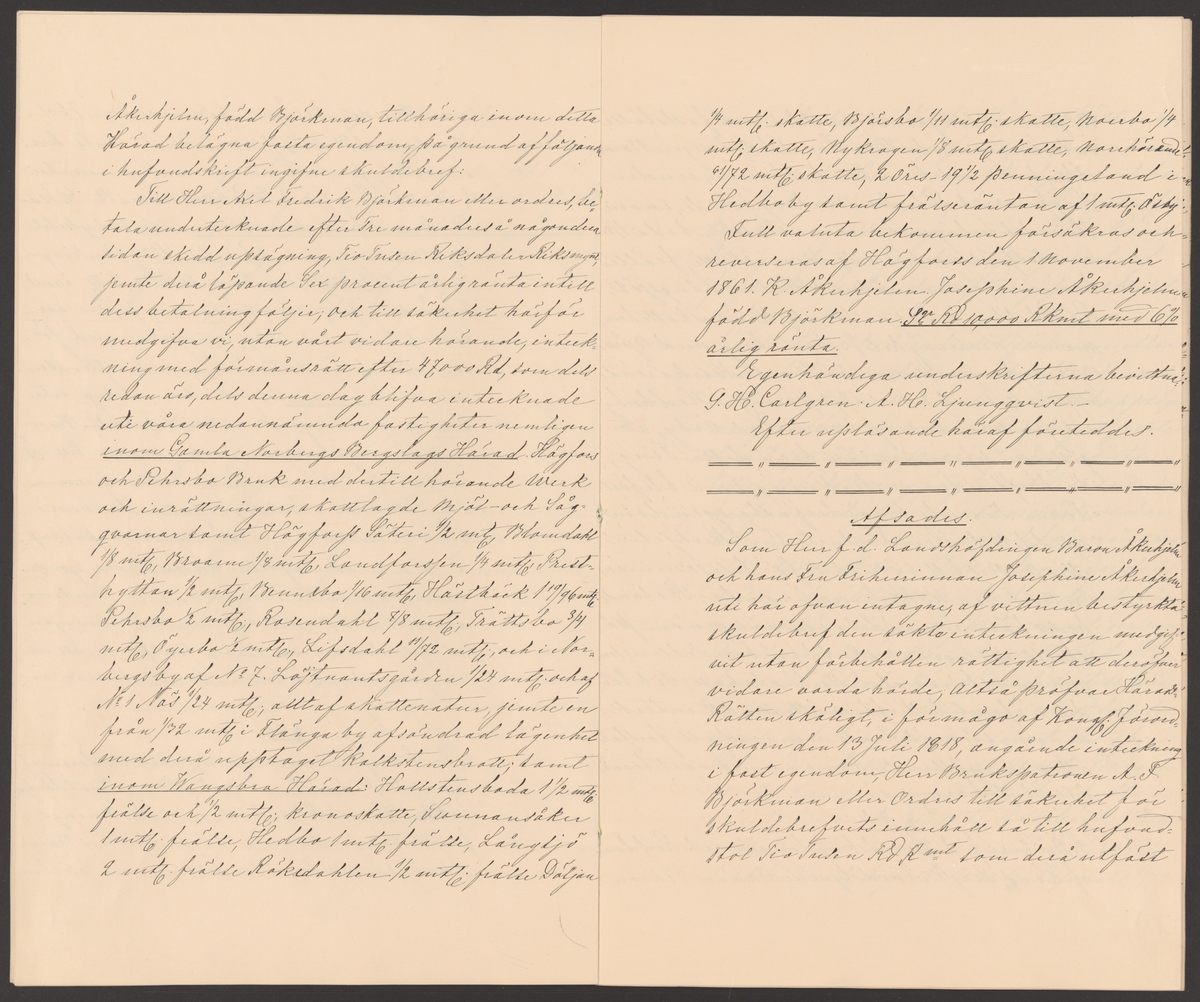 Åkerhjelm, född Björkman, tillhöriga inom detta
Härad belägna fasta egendom, på grund af följande
i hufvudskrift ingifne skuldebref:
Till Herr Axel Fredrik Björkman eller ordres, be-
tala undertecknade efter Tre månader å någondera
sidan skedd uppsägning, Tio Tusen Riksdaler Riksmynt,
jemte derå löpande Sex procent årlig ränta intill
dess betalning följer; och till säkerhet härför
medgifva vi, utan vårt vidare hörande, inteck-
ning med förmånsrätt efter 47000 Rd, som dels
redan äro, dels denna dag blifva intecknade
uti våra nedannämnda fastigheter nemligen
inom Gamla Norbergs Bergslags Härad: Högfors
och Pehrsbo Bruk med dertill hörande Werk
och inrättningar, skattlagde Mjöl- och Såg-
qvarnar samt Högforss Säteri 1/2 mtl, Blomdahl
1/8 mtl, Broarne 1/8 mtl, Landforssen 1/4 mtl, Prest-
hyttan 1/2 mtl, Bennebo 1/16 mtl, Hästbäck 1 19/96 mtl
Pehrsbo 1/2 mtl, Rosendahl 7/8 mtl, Trättsbo 3/4
mtl, Öyerbo 1/2 mtl, Lifsdahl 11/72 mtl, och i Nor-
bergsby af No 7. Löjtnantsgården 1/24 mtl. och af
No 1 Näs 1/24 mtl; allt af skattenatur, jemte en
från 1/32 mtl i Flänga by afsöndrad lägenhet
med derå upptaget kalkstensbrott; samt
inom Wangsbro Härad: Hallstensboda 1 1/2 mtl
frälse och 1/2 mtl; kronoskatte, Svonnansåker
1 mtl; frälse, Hedbo 1 mtl; frälse, Långsjö
2 mtl. frälse Rökedahlen 1/2 mtl; frälse Döljan
1/4 mtl; skatte, Björsbo 1/11 mtl; skatte, Norrbo 1/4
mtl; skatte, Nykrogen 1/8 mtl skatte, Norehörande
61/72 mtl; skatte, 2 öres 19 1/2 penningeland i
Hedboby samt frälseräntan af 1 mtl. Östby.
Full valuta bekommen försäkras och
reverseras af Högforss den 1 November
1861. K. Åkerhjelm. Josephine Åkerhjelm
född Björkman. Sgr Rd 10,000 Rkmt med 6%
årlig ränta.
Egenhändiga underskrifterna bevittna:
G. H. Carlgren. A. H. Ljungqvist.-
Efter uppläsande häraf företeddes.
Afsades.
Som Herr f. d. Landshöfdingen Baron Åkerhjelm
och hans Fru Friherrinnan Josephine Åkerhjelm
uti här ofvan intagne, af vittnen bestyrkta
skuldebref den sökta inteckningen medgif-
vit utan förbehållen rättighet att deröfver
vidare varda hörde, Altså pröfvar Härads
Rätten skäligt, i förmågo af Kongl. Förord-
ningen den 13 Juli 1818, angående inteckning
i fast egendom, Herr Brukspatronen A. F.
Björkman eller Ordres till säkerhet för
skuldebrefvets innehåll så till hufvud-
stol Tio Tusen Rd Rmt som derå utfäst